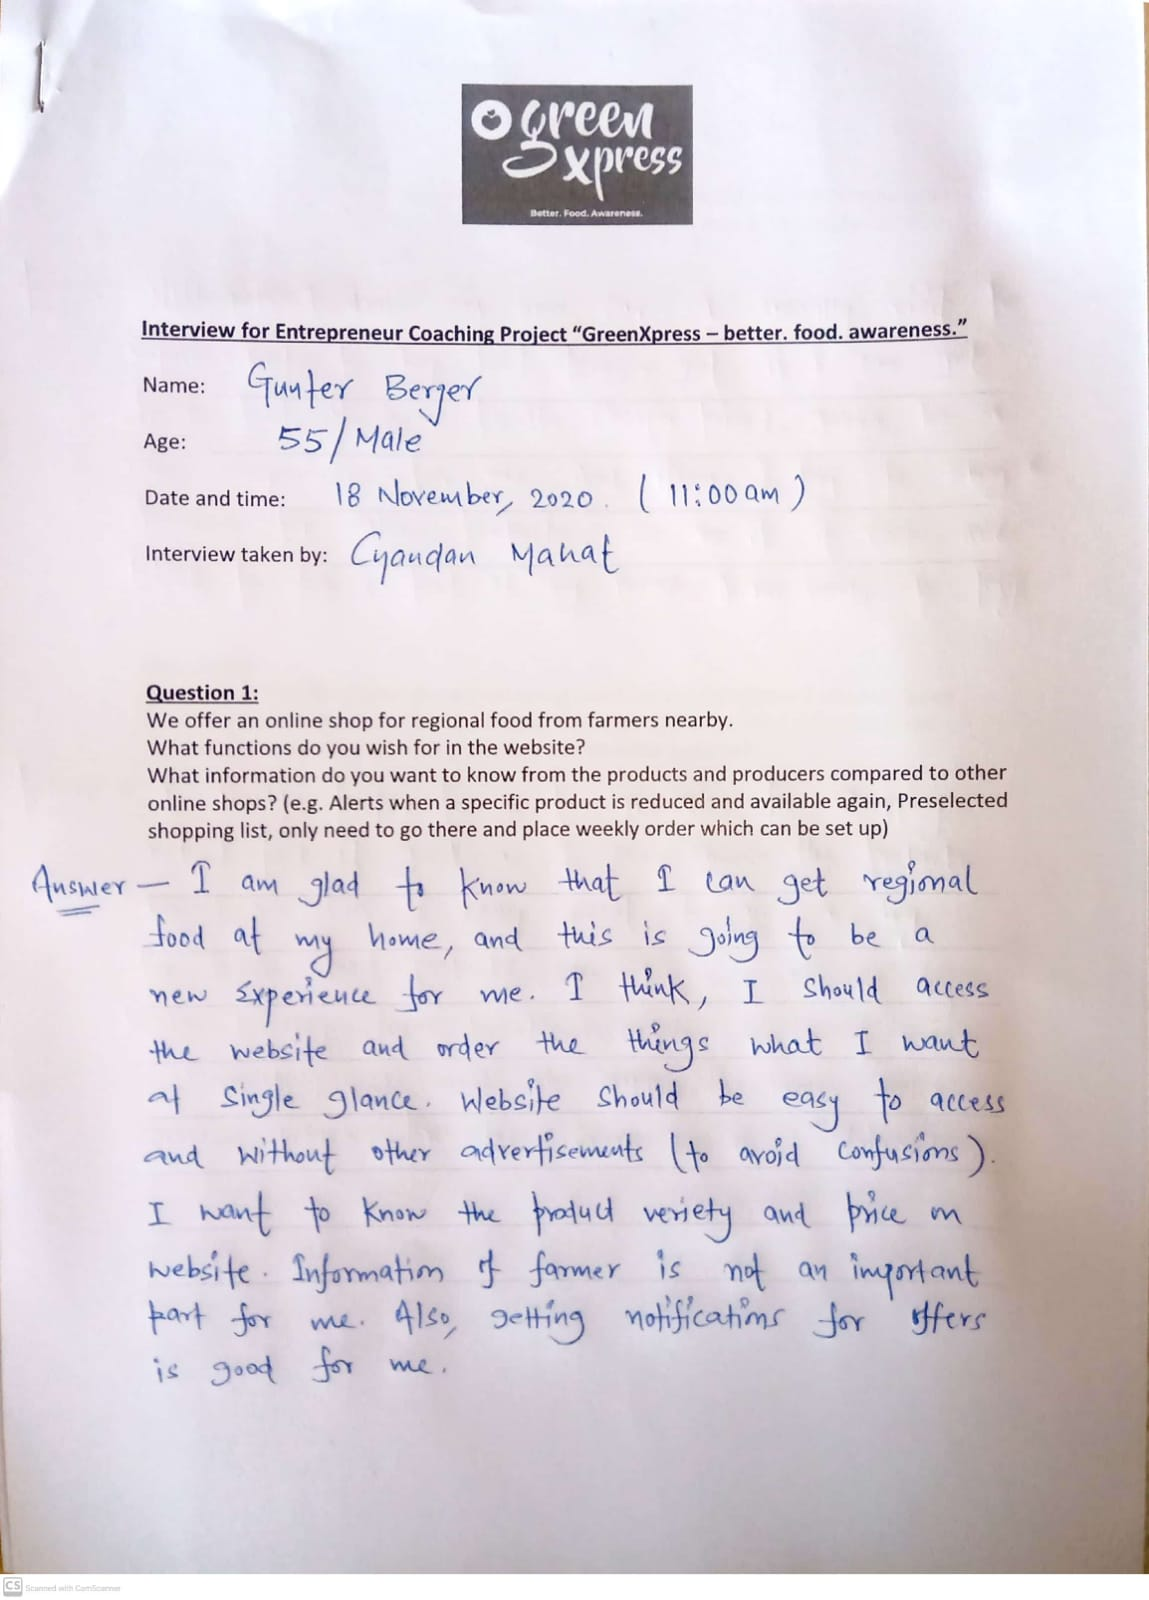 green
xpress
Better. Food. Awareness.
Interview for Entrepreneur Coaching Project “GreenXpress – better. food. awareness.”
Name: Gunter Berger
Age: 55/Male
Date and time: 18 November, 2020. (11:00 am)
Interview taken by: Gyandan Mahat
Question 1:
We offer an online shop for regional food from farmers nearby.
What functions do you wish for in the website?
What information do you want to know from the products and producers compared to other
online shops? (e.g. Alerts when a specific product is reduced and available again, Preselected
shopping list, only need to go there and place weekly order which can be set up)
Answer – I am glad to know that I can get regional
food at my home, and this is going to be a
new Experience for me. I think, I should access
the website and order the things what I want
at single glance. Website should be easy to access
and without other advertisements (to avoid confusions).
I want to know the product veriety and price on
website. Information of farmer is not an important
part for me. Also, getting notifications for offers
is good for me.
CS Scanned with CamScanner